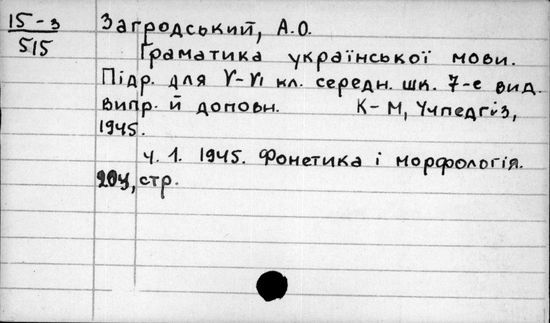 15-з
515
Загродський, А.О.
Граматика української мови.
Підр. для V-VI кл. середн. шк. 7-е вид.
випр. й доповн. К-М, Учпедгіз,
1945.
ч. 1. 1945. Фонетика і морфологія.
204, стр.